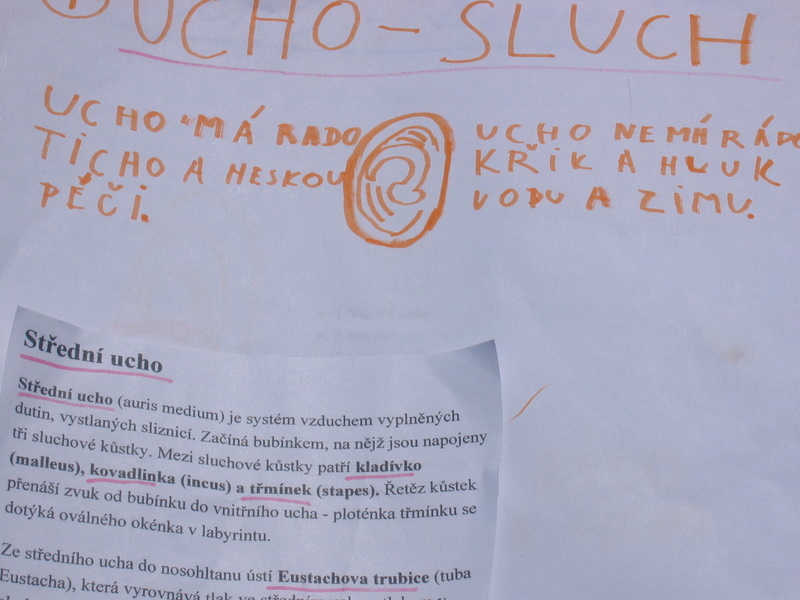 UCHO - SLUCH
UCHO MÁ RÁDO
TICHO A HESKOU
PÉČI.
UCHO NEMÁ RÁDO
KŘIK A HLUK
VODU A ZIMU.
Střední ucho
Střední ucho (auris medium) je systém vzduchem vyplněných
dutin, vystlaných sliznicí. Začíná bubínkem, na nějž jsou napojeny
tři sluchové kůstky. Mezi sluchové kůstky patří kladívko
(malleus), kovadlinka (incus) a třmínek (stapes). Řetěz kůstek
přenáší zvuk od bubínku do vnitřního ucha - ploténka třmínku se
dotýká oválného okénka v labyrintu.
Ze středního ucha do nosohltanu ústí Eustachova trubice (tuba
Eustacha), která vyrovnává tlak ve